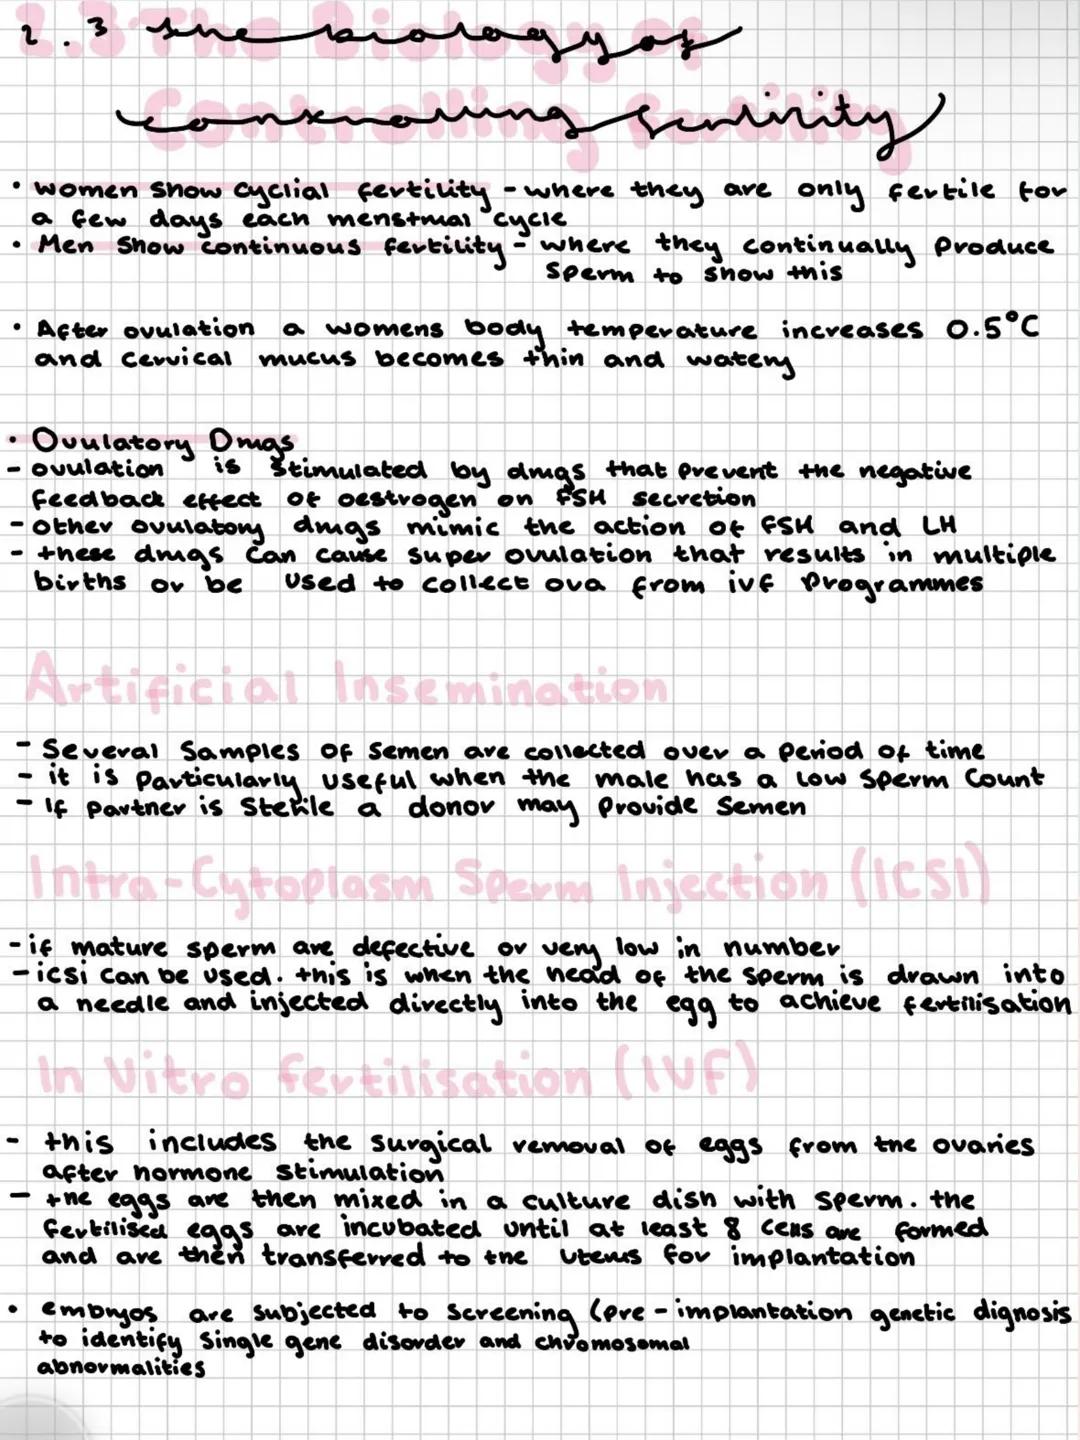 2.3 The Biology of
Controlling Fertility
• women show cyclial fertility - where they are only fertile for
a few days each menstrual cycle
• Men show continuous fertility - where they continually produce
sperm to show this
• After ovulation a womens body temperature increases 0.5°C
and cervical mucus becomes thin and watery
• Ovulatory Drugs
- ovulation is stimulated by drugs that prevent the negative
feedback effect of oestrogen on FSH secretion
- other ovulatory drugs mimic the action of FSH and LH
- these drugs can cause super ovulation that results in multiple
births or be used to collect ova from ivf programmes
Artificial Insemination
- Several samples of semen are collected over a period of time
- it is particularly useful when the male has a low sperm count
- If partner is sterile a donor may provide semen
Intra-Cytoplasm Sperm Injection (ICSI)
- if mature sperm are defective or very low in number
- icsi can be used. this is when the head of the sperm is drawn into
a needle and injected directly into the egg to achieve fertilisation
In Vitro Fertilisation (IVF)
- this includes the surgical removal of eggs from the ovaries
after hormone stimulation
- the eggs are then mixed in a culture dish with sperm. the
fertilised eggs are incubated until at least 8 cells are formed
and are then transferred to the uterus for implantation
• embryos are subjected to screening (pre-implantation genetic dignosis
to identify single gene disorder and chromosomal
abnormalities